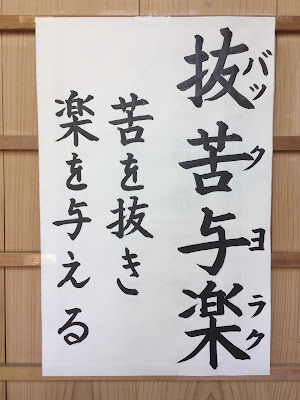 抜苦与楽
バックヨラク
苦を抜き
楽を与える